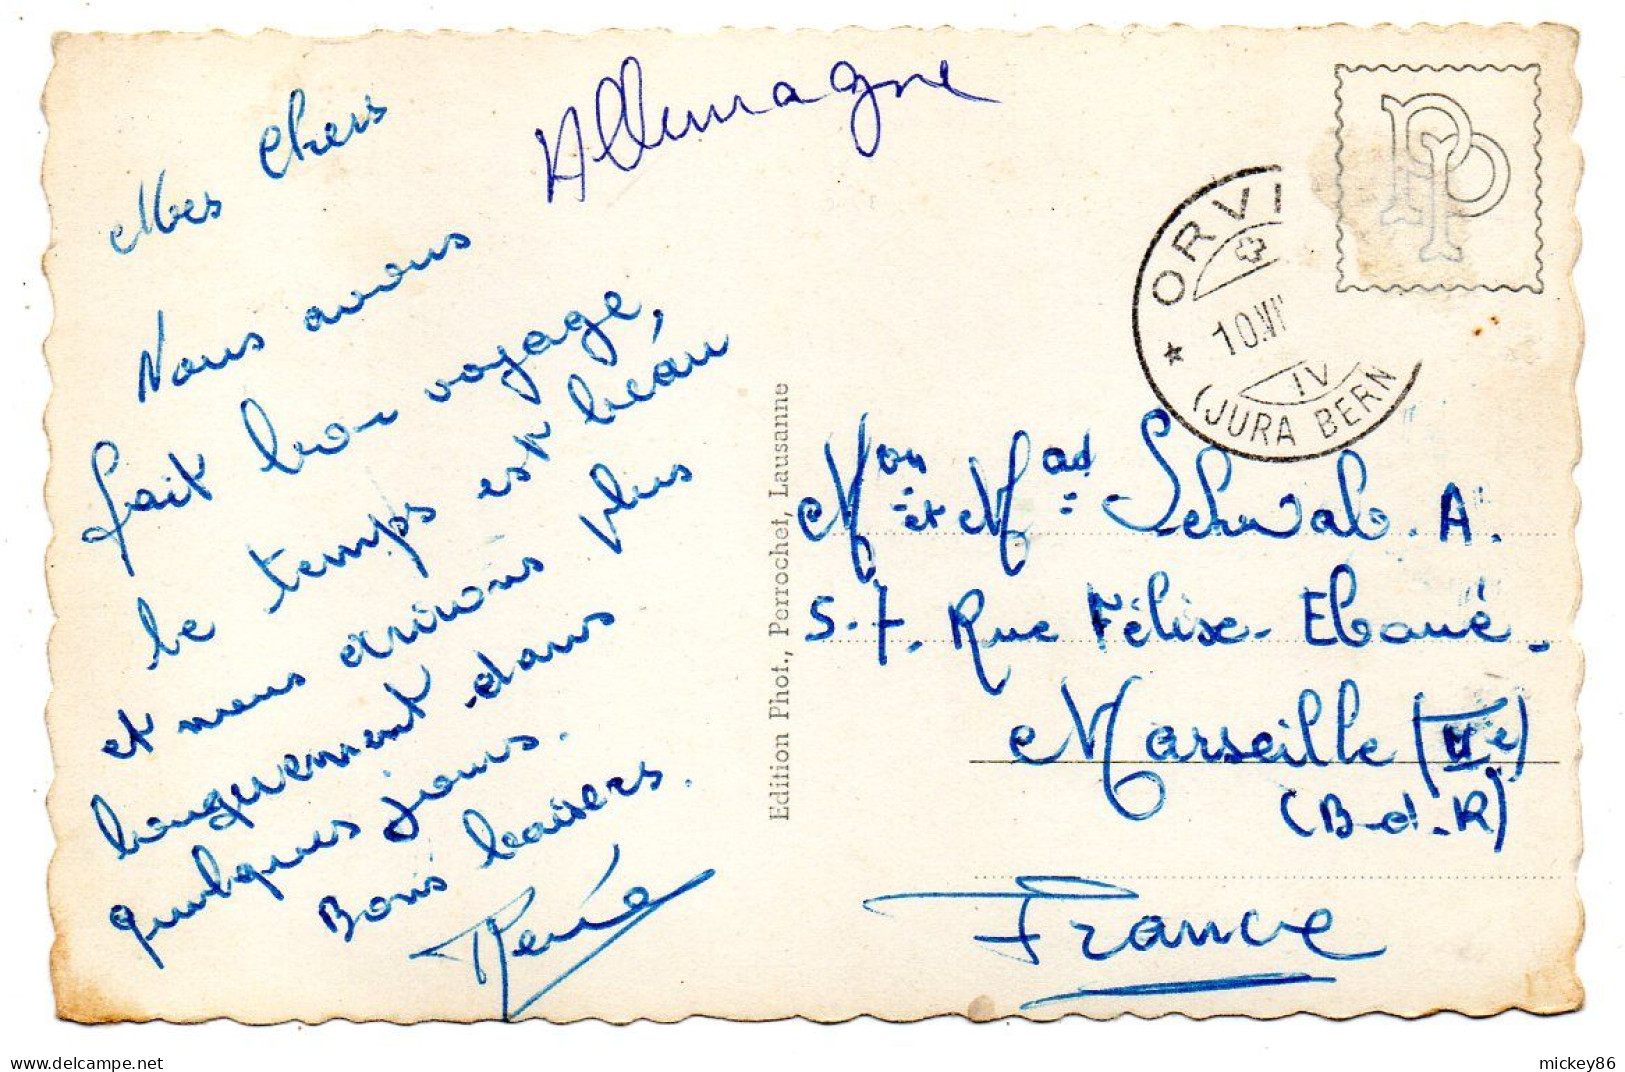 Allemagne
Mes Chers
Nous avons
fait bon voyage,
le temps est beau
et nous écrirons plus
longuement dans
quelques jours.
Bons baisers.
René
Edition Phot., Perrochet, Lausanne
PP
* ORVI
10.VI
IV
(JURA BERN
Mon et Mad Schwab. A.
57. Rue Félix-Eboué-
Marseille (IIe)
(B-d-R)
France
delcampe.net
mickey86